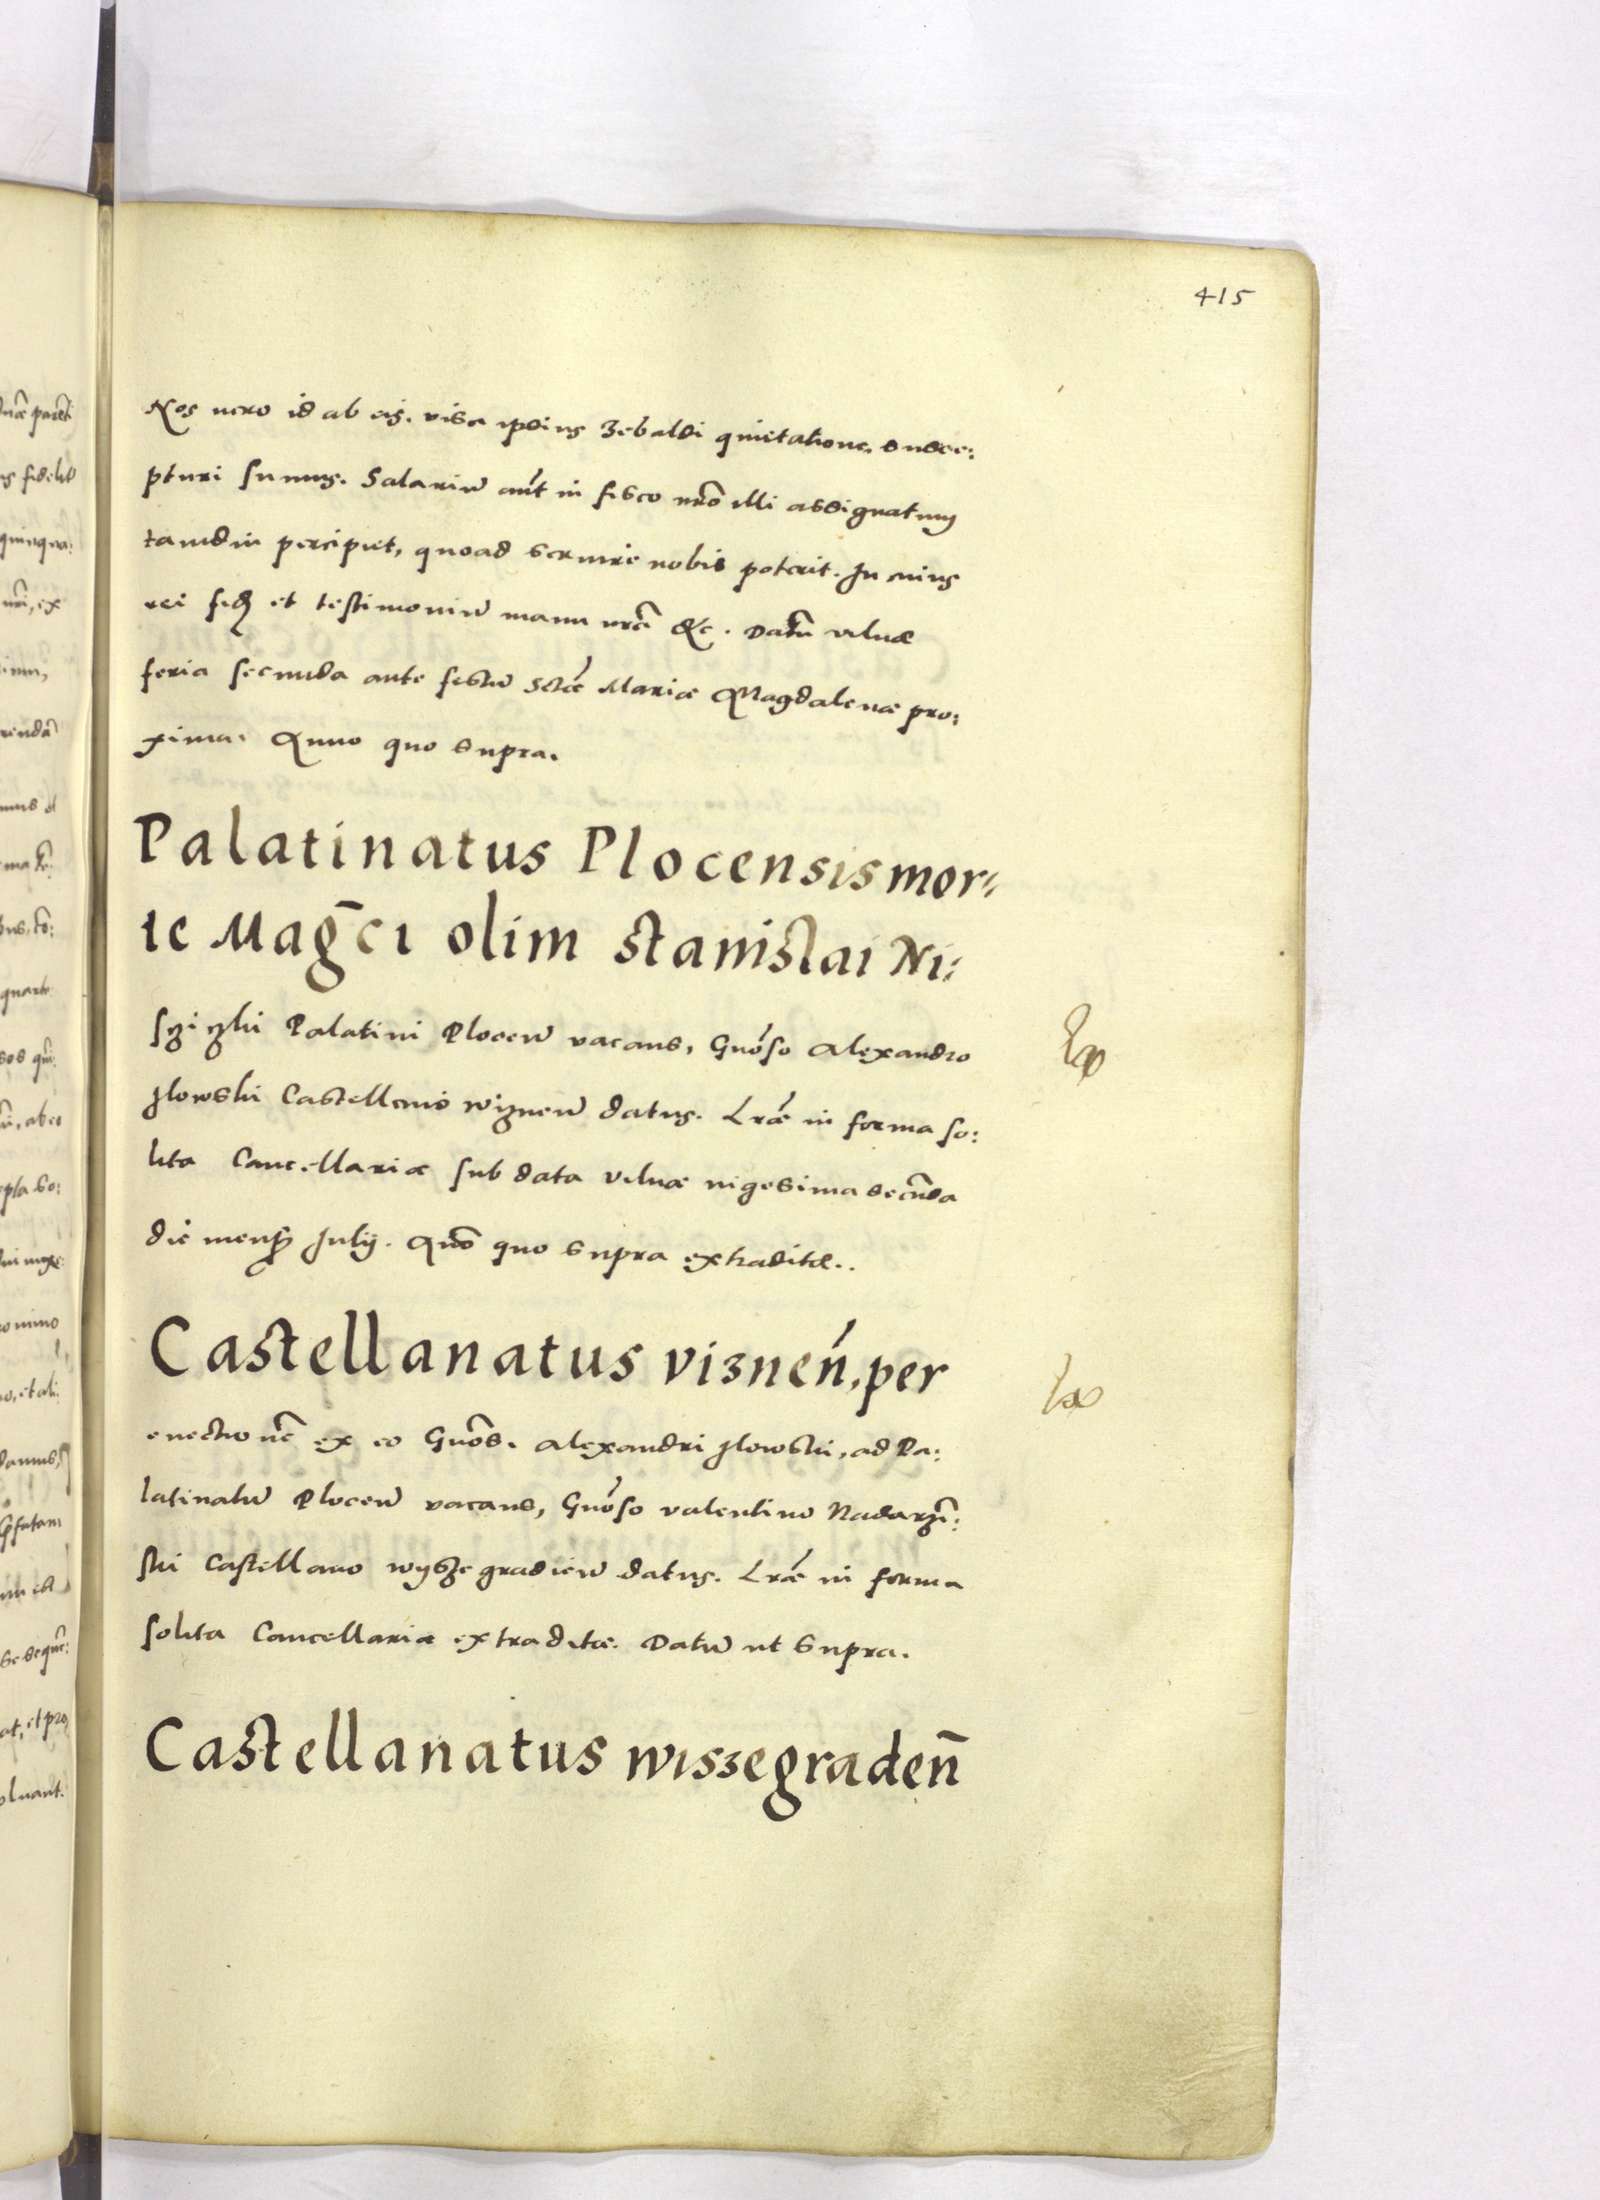 415
Nos uero id ab eis, visa ipsius Zebaldi quietatione, susce:
pturi sumus. Salariũ aũt in fisco nrõ illi assignatum
tamdiu percipiet, quoad seruire nobis poterit. In cuius
rei fidẽ et testimoniũ manu nrã &c. Datũ vilnæ
feria secunda ante festũ Sctæ Mariæ Magdalenæ pro:
xima. Anno quo supra.
Palatinatus Plocensis mor:
te Mag̃ci olim Stanislai Ni:
szczyzki Palatini Plocen̄ vacans, Gnõso Alexandro
Ilowski Castellano wiznen̄ datus. Lræ in forma so:
lita Cancellariæ sub data vilnæ uigesima secũda
die mensis Julij. Añõ quo supra extraditæ..
Castellanatus vizneń, per
euectionẽ ex eo Gnõs. Alexandri Ilowski, ad Pa:
latinatũ Plocen̄ vacans, Gnõso valentino Nadarzĩ:
ski Castellano wyszegradien̄ datus. Lræ in forma
solita Cancellariæ extraditæ. Datũ ut supra.
Castellanatus wisszegraden̄